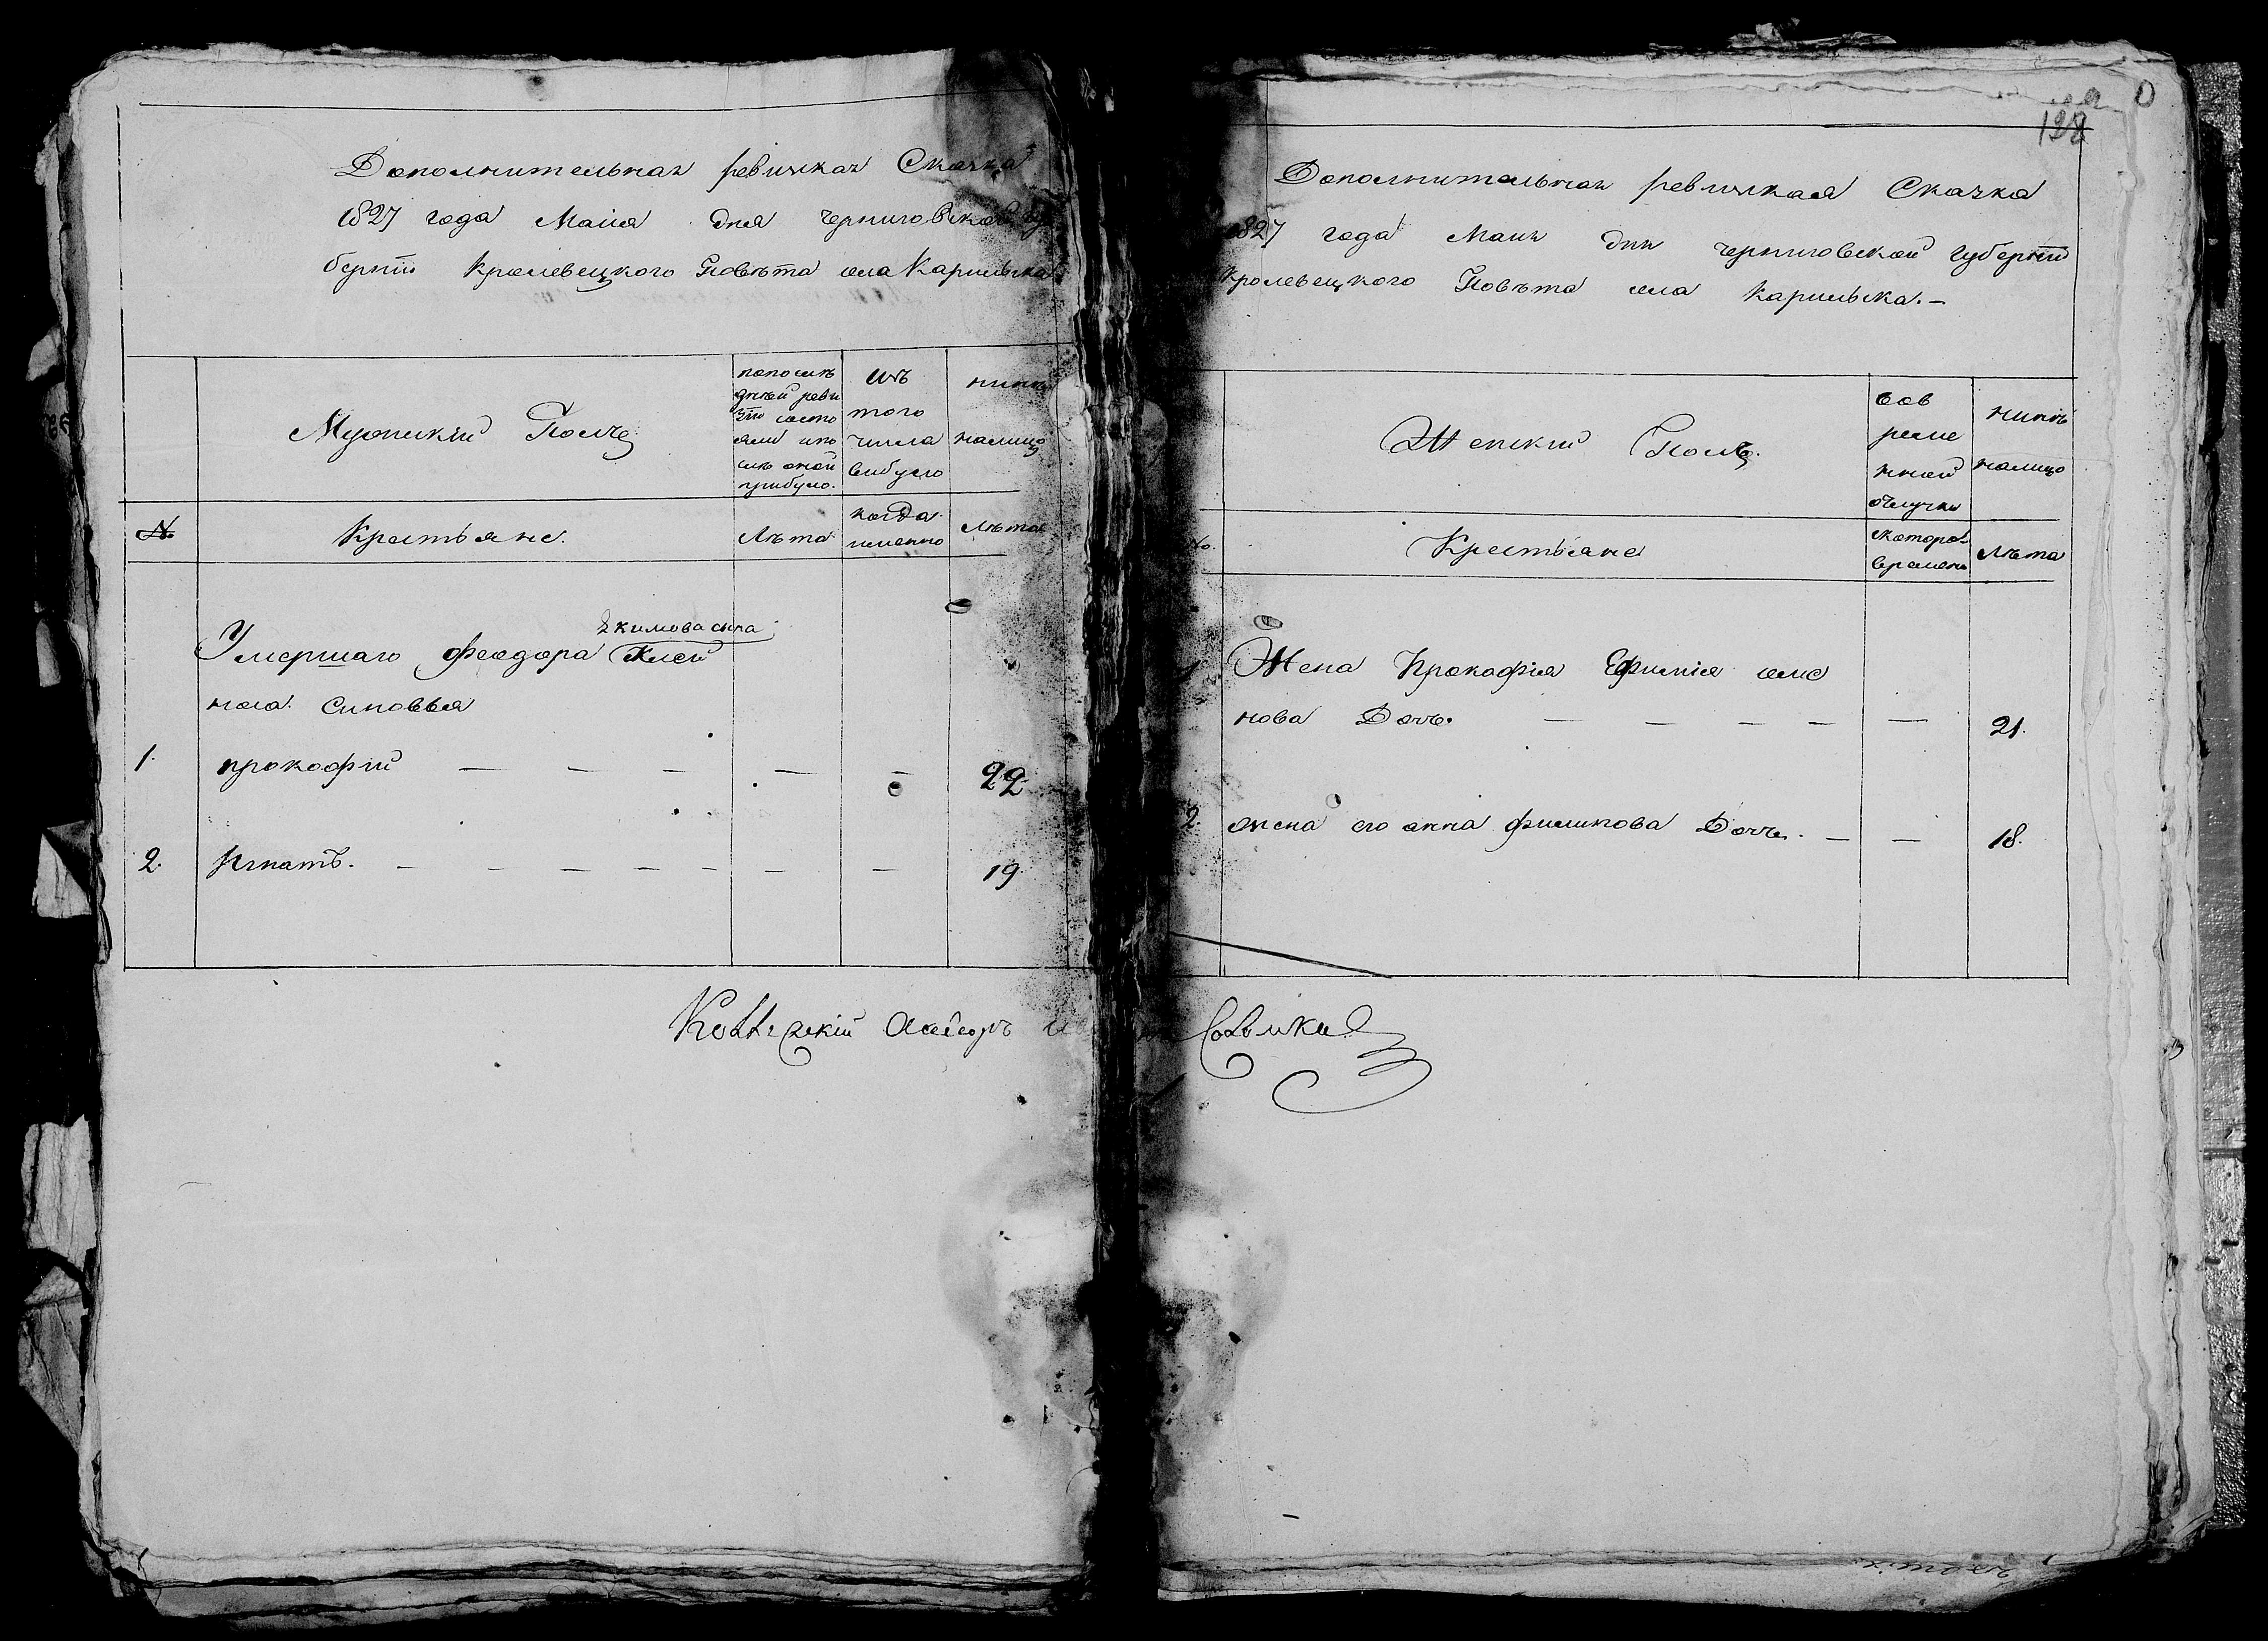 Дополнительная ревижкая Сказка
1827 года Маия дня черниговской гу
бернии Кролевецкого Повѣта села Карильска
Мужеский Полъ
попослѣ
дней реви
зии состо
яли ипо
слѣ оной
прибуло.
изъ
того
числа
вибуло
нинѣ
налицо
№
Крестьяне.
Лѣта
когда
именно
Лѣта
Якимова сина
Умершаго феодора Клей
мога синовья
1. прокофий — — — — — 22
2. Игнатъ. — — — — — — — 19
138
Дополнительная ревижкая Сказка
1827 года Маия дня черниговской губернии
Кролевецкого Повѣта села Карильска. —
Женский Полъ.
вов
реме
нной
отлучки
нинѣ
налицо
№.
Крестьяне
скоторо
времени
Лѣта
1 Жена Прокофия Ефимия семе
нова Дочь. — — — — — 21.
2. жена его анна филипова Дочь. — — 18.